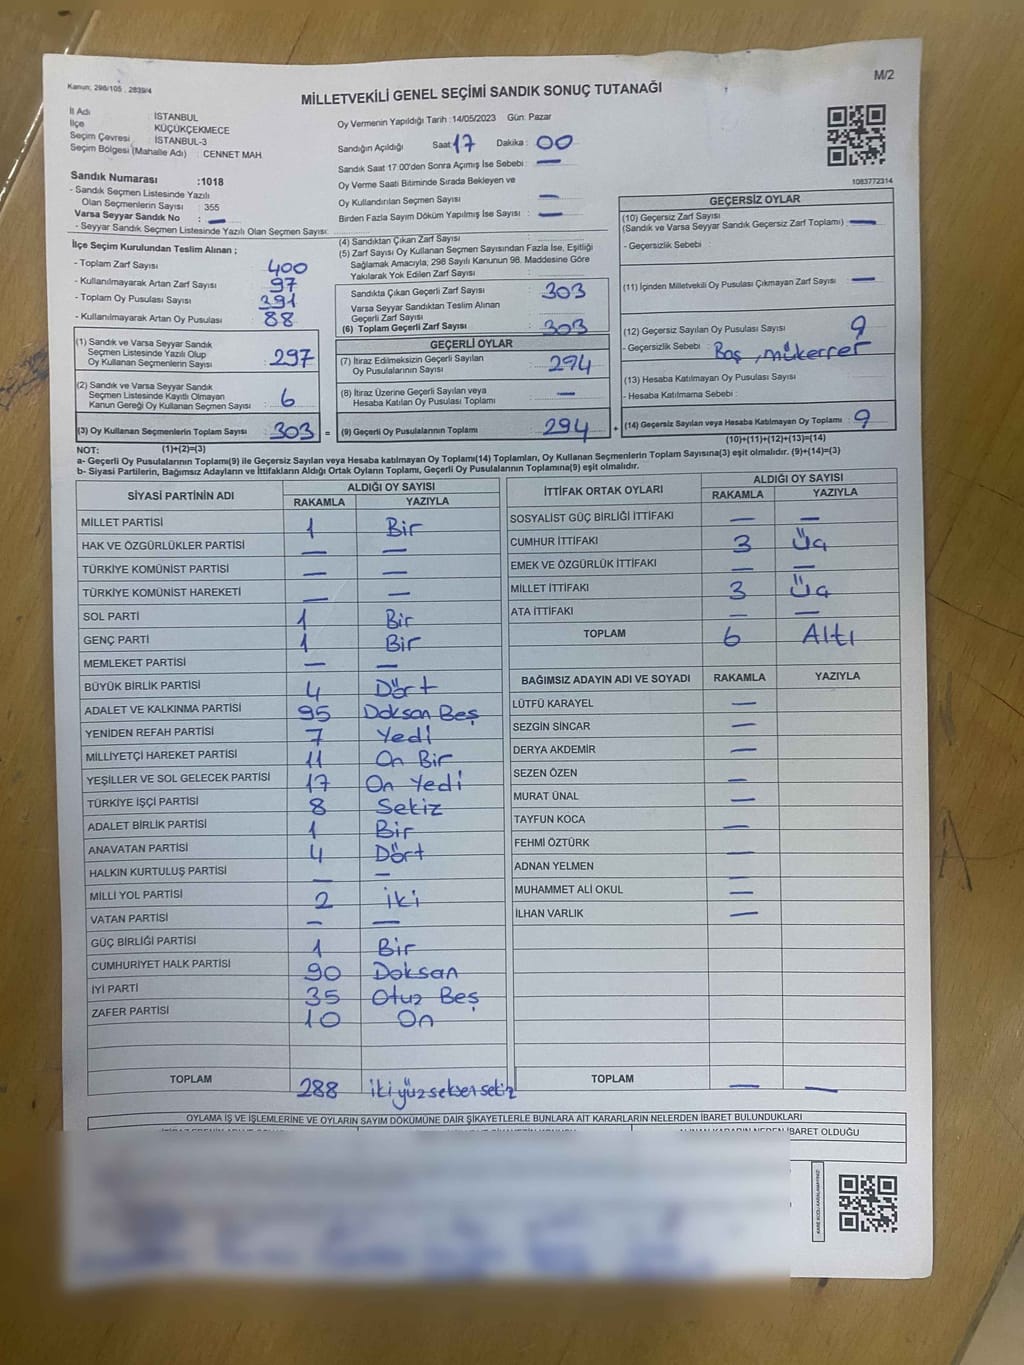 Kanun: 298/105 , 2839/4
M/2
MİLLETVEKİLİ GENEL SEÇİMİ SANDIK SONUÇ TUTANAĞI
İl Adı : İSTANBUL
İlçe : KÜÇÜKÇEKMECE
Seçim Çevresi : İSTANBUL-3
Seçim Bölgesi (Mahalle Adı) : CENNET MAH.
Oy Vermenin Yapıldığı Tarih :14/05/2023 Gün: Pazar
Sandığın Açıldığı Saat: 17 Dakika : 00
Sandık Saat 17:00'den Sonra Açımış İse Sebebi : —
Oy Verme Saati Bitiminde Sırada Bekleyen ve
Oy Kullandırılan Seçmen Sayısı : —
Birden Fazla Sayım Döküm Yapılmış İse Sayısı : —
Sandık Numarası :1018
- Sandık Seçmen Listesinde Yazılı
Olan Seçmenlerin Sayısı : 355
Varsa Seyyar Sandık No : —
- Seyyar Sandık Seçmen Listesinde Yazılı Olan Seçmen Sayısı:
1083772314
İlçe Seçim Kurulundan Teslim Alınan ;
- Toplam Zarf Sayısı : 400
- Kullanılmayarak Artan Zarf Sayısı : 97
- Toplam Oy Pusulası Sayısı : 391
- Kullanılmayarak Artan Oy Pusulası : 88
(1) Sandık ve Varsa Seyyar Sandık
Seçmen Listesinde Yazılı Olup
Oy Kullanan Seçmenlerin Sayısı : 297
(2) Sandık ve Varsa Seyyar Sandık
Seçmen Listesinde Kayıtlı Olmayan
Kanun Gereği Oy Kullanan Seçmen Sayısı : 6
(3) Oy Kullanan Seçmenlerin Toplam Sayısı : 303 =
(4) Sandıktan Çıkan Zarf Sayısı :
(5) Zarf Sayısı Oy Kullanan Seçmen Sayısından Fazla İse, Eşitliği
Sağlamak Amacıyla, 298 Sayılı Kanunun 98. Maddesine Göre
Yakılarak Yok Edilen Zarf Sayısı :
Sandıkta Çıkan Geçerli Zarf Sayısı : 303
Varsa Seyyar Sandıktan Teslim Alınan
Geçerli Zarf Sayısı :
(6) Toplam Geçerli Zarf Sayısı : 303
GEÇERLİ OYLAR
(7) İtiraz Edilmeksizin Geçerli Sayılan
Oy Pusulalarının Sayısı : 294
(8) İtiraz Üzerine Geçerli Sayılan veya
Hesaba Katılan Oy Pusulası Toplamı : —
(9) Geçerli Oy Pusulalarının Toplamı : 294 +
GEÇERSİZ OYLAR
(10) Geçersiz Zarf Sayısı
(Sandık ve Varsa Seyyar Sandık Geçersiz Zarf Toplamı) : —
- Geçersizlik Sebebi :
(11) İçinden Milletvekili Oy Pusulası Çıkmayan Zarf Sayısı : —
(12) Geçersiz Sayılan Oy Pusulası Sayısı : 9
- Geçersizlik Sebebi : Boş, mükerrer
(13) Hesaba Katılmayan Oy Pusulası Sayısı :
- Hesaba Katılmama Sebebi :
(14) Geçersiz Sayılan veya Hesaba Katılmayan Oy Toplamı : 9
NOT: (1)+(2)=(3)
(10)+(11)+(12)+(13)=(14)
a- Geçerli Oy Pusulalarının Toplamı(9) ile Geçersiz Sayılan veya Hesaba katılmayan Oy Toplamı(14) Toplamları, Oy Kullanan Seçmenlerin Toplam Sayısına(3) eşit olmalıdır. (9)+(14)=(3)
b- Siyasi Partilerin, Bağımsız Adayların ve İttifakların Aldığı Ortak Oyların Toplamı, Geçerli Oy Pusulalarının Toplamına(9) eşit olmalıdır.
SİYASİ PARTİNİN ADI ALDIĞI OY SAYISI
RAKAMLA YAZIYLA
MİLLET PARTİSİ 1 Bir
HAK VE ÖZGÜRLÜKLER PARTİSİ — —
TÜRKİYE KOMÜNİST PARTİSİ — —
TÜRKİYE KOMÜNİST HAREKETİ — —
SOL PARTİ 1 Bir
GENÇ PARTİ 1 Bir
MEMLEKET PARTİSİ — —
BÜYÜK BİRLİK PARTİSİ 4 Dört
ADALET VE KALKINMA PARTİSİ 95 Doksan Beş
YENİDEN REFAH PARTİSİ 7 Yedi
MİLLİYETÇİ HAREKET PARTİSİ 11 On Bir
YEŞİLLER VE SOL GELECEK PARTİSİ 17 On Yedi
TÜRKİYE İŞÇİ PARTİSİ 8 Sekiz
ADALET BİRLİK PARTİSİ 1 Bir
ANAVATAN PARTİSİ 4 Dört
HALKIN KURTULUŞ PARTİSİ — —
MİLLİ YOL PARTİSİ 2 iki
VATAN PARTİSİ — —
GÜÇ BİRLİĞİ PARTİSİ 1 Bir
CUMHURİYET HALK PARTİSİ 90 Doksan
İYİ PARTİ 35 Otuz Beş
ZAFER PARTİSİ 10 On
TOPLAM 288 ikiyüzseksensekiz
İTTİFAK ORTAK OYLARI ALDIĞI OY SAYISI
RAKAMLA YAZIYLA
SOSYALİST GÜÇ BİRLİĞİ İTTİFAKI — —
CUMHUR İTTİFAKI 3 Üç
EMEK VE ÖZGÜRLÜK İTTİFAKI — —
MİLLET İTTİFAKI 3 Üç
ATA İTTİFAKI — —
TOPLAM 6 Altı
BAĞIMSIZ ADAYIN ADI VE SOYADI RAKAMLA YAZIYLA
LÜTFÜ KARAYEL —
SEZGİN SİNCAR —
DERYA AKDEMİR —
SEZEN ÖZEN —
MURAT ÜNAL —
TAYFUN KOCA —
FEHMİ ÖZTÜRK —
ADNAN YELMEN —
MUHAMMET ALİ OKUL —
İLHAN VARLIK —
TOPLAM — —
OYLAMA İŞ VE İŞLEMLERİNE VE OYLARIN SAYIM DÖKÜMÜNE DAİR ŞİKAYETLERLE BUNLARA AİT KARARLARIN NELERDEN İBARET BULUNDUKLARI
İBARET OLDUĞU